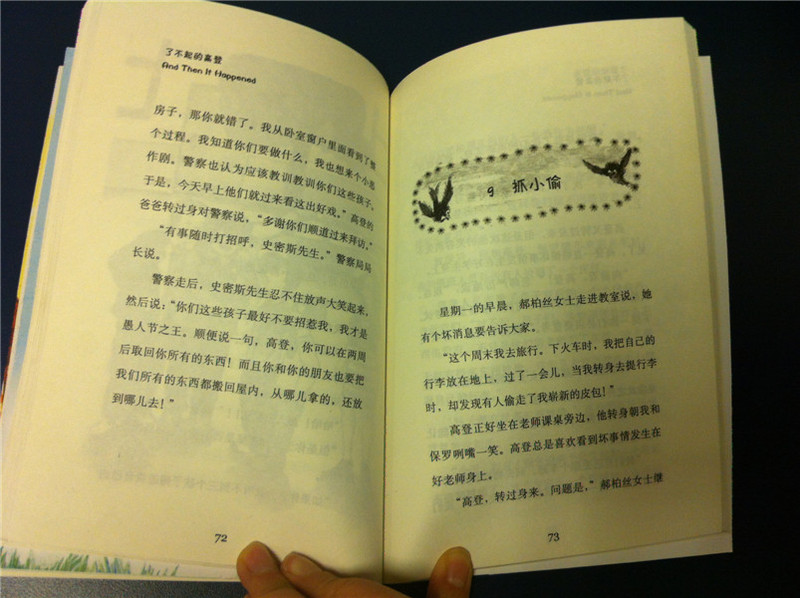 了不起的高登
And Then It Happened
房子，那你就错了。我从卧室窗户里面看到了整
个过程。我知道你们要做什么，我也想来个小恶
作剧。警察也认为应该教训教训你们这些孩子，
于是，今天早上他们就过来看这出好戏。”高登的
爸爸转过身对警察说，“多谢你们顺道过来拜访。”
“有事随时打招呼，史密斯先生。”警察局局
长说。
警察走后，史密斯先生忍不住放声大笑起来，
然后说：“你们这些孩子最好不要招惹我，我才是
愚人节之王。顺便说一句，高登，你可以在两周
后取回你所有的东西！而且你和你的朋友也要把
我们所有的东西都搬回屋内，从哪儿拿的，还放
到哪儿去！”
72
9 抓小偷
星期一的早晨，郝柏丝女士走进教室说，她
有个坏消息要告诉大家。
“这个周末我去旅行。下火车时，我把自己的
行李放在地上，过了一会儿，当我转身去提行李
时，却发现有人偷走了我崭新的皮包！”
高登正好坐在老师课桌旁边，他转身朝我和
保罗咧嘴一笑。高登总是喜欢看到坏事情发生在
好老师身上。
“高登，转过身来。问题是，”郝柏丝女士继
73